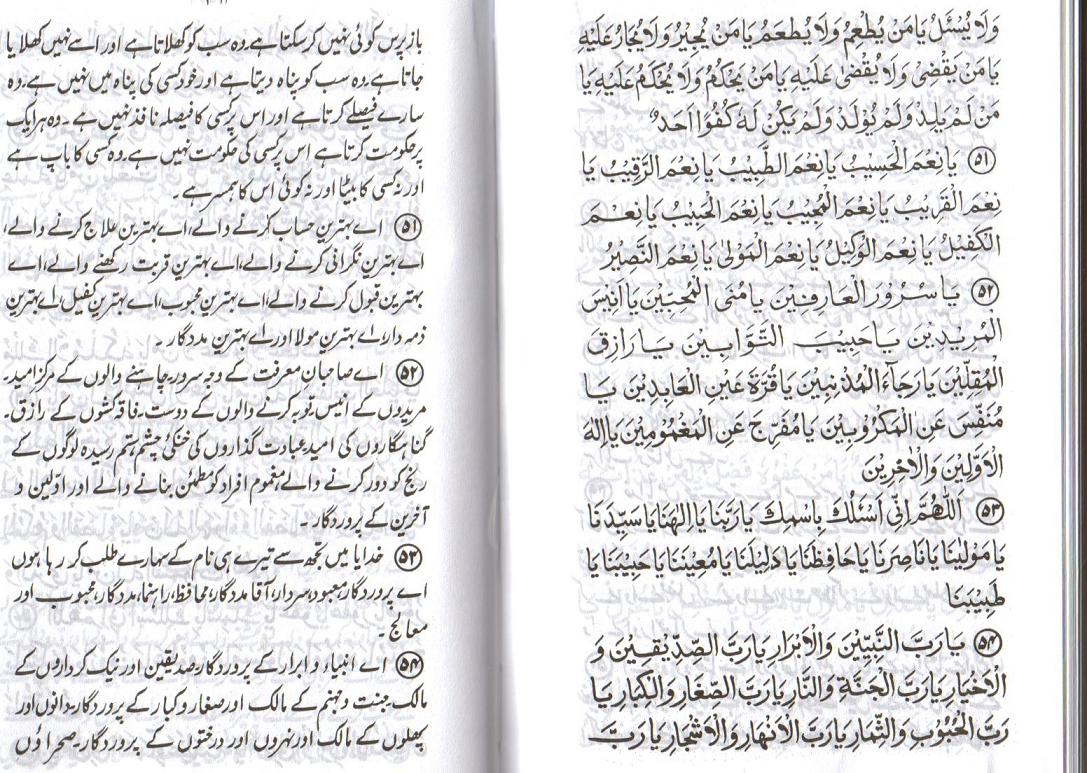 وَلَا يُسْئَلُ يَا مَنْ يُطْعِمُ وَلَا يُطْعَمُ يَا مَنْ يُجِيرُ وَلَا يُجَارُ عَلَيْهِ
يَا مَنْ يَقْضِىْ وَلَا يُقْضٰى عَلَيْهِ يَا مَنْ يَحْكُمُ وَلَا يُحْكَمُ عَلَيْهِ يَا
مَنْ لَمْ يَلِدْ وَلَمْ يُوْلَدْ وَلَمْ يَكُنْ لَهٗ كُفُوًا اَحَدٌ
۵۱ يَا نِعْمَ الْحَسِيْبُ يَا نِعْمَ الطَّبِيْبُ يَا نِعْمَ الرَّقِيْبُ يَا
نِعْمَ الْقَرِيْبُ يَا نِعْمَ الْمُجِيْبُ يَا نِعْمَ الْحَبِيْبُ يَا نِعْمَ
الْكَفِيْلُ يَا نِعْمَ الْوَكِيْلُ يَا نِعْمَ الْمَوْلٰى يَا نِعْمَ النَّصِيْرُ
۵۲ يَا سُرُوْرَ الْعَارِفِيْنَ يَا مُنَى الْمُحِبِّيْنَ يَا اَنِيْسَ
الْمُرِيْدِيْنَ يَا حَبِيْبَ التَّوَّابِيْنَ يَا رَازِقَ
الْمُقِلِّيْنَ يَا رَجَاۤءَ الْمُذْنِبِيْنَ يَا قُرَّةَ عَيْنِ الْعَابِدِيْنَ يَا
مُنَفِّسَ عَنِ الْمَكْرُوْبِيْنَ يَا مُفَرِّجَ عَنِ الْمَغْمُوْمِيْنَ يَا اِلٰهَ
الْاَوَّلِيْنَ وَالْاٰخِرِيْنَ
۵۳ اَللّٰهُمَّ اِنِّىْ اَسْئَلُكَ بِاسْمِكَ يَا رَبَّنَا يَا اِلٰهَنَا يَا سَيِّدَنَا
يَا مَوْلٰينَا يَا نَاصِرَنَا يَا حَافِظَنَا يَا دَلِيْلَنَا يَا مُعِيْنَنَا يَا حَبِيْبَنَا يَا
طَبِيْبَنَا
۵۴ يَا رَبَّ النَّبِيِّيْنَ وَالْاَبْرَارِ يَا رَبَّ الصِّدِّيْقِيْنَ وَ
الْاَخْيَارِ يَا رَبَّ الْجَنَّةِ وَالنَّارِ يَا رَبَّ الصِّغَارِ وَالْكِبَارِ يَا
رَبَّ الْحُبُوْبِ وَالثِّمَارِ يَا رَبَّ الْاَنْهَارِ وَالْاَشْجَارِ يَا رَبَّ
باز پرس کوئی نہیں کر سکتا ہے۔وہ سب کو کھلاتا ہے اور اسے نہیں کھلایا
جاتا ہے۔وہ سب کو پناہ دیتا ہے اور خود کسی کی پناہ میں نہیں ہے۔وہ
سارے فیصلے کرتا ہے اور اس پر کسی کا فیصلہ نافذ نہیں ہے۔وہ ہر ایک
پر حکومت کرتا ہے اس پر کسی کی حکومت نہیں ہے۔وہ کسی کا باپ ہے
اور نہ کسی کا بیٹا اور نہ کوئی اس کا ہمسر ہے۔
۵۱ اے بہترین حساب کرنے والے،اے بہترین علاج کرنے والے،
اے بہترین نگرانی کرنے والے،اے بہترین قربت رکھنے والے،اے
بہترین قبول کرنے والے،اے بہترین محبوب،اے بہترین کفیل،اے بہترین
ذمہ دار،اے بہترین مولا اور اے بہترین مددگار۔
۵۲ اے صاحبانِ معرفت کے وجہ سرور،چاہنے والوں کے مرکز امید۔
مریدوں کے انیس،توبہ کرنے والوں کے دوست۔فاقہ کشوں کے رازق۔
گناہگاروں کی امید،عبادت گذاروں کی خنکیٔ چشم،ستم رسیدہ لوگوں کے
رنج کو دور کرنے والے،مغموم افراد کو مطمئن بنانے والے اور اوّلین و
آخرین کے پروردگار۔
۵۳ خدایا میں تجھ سے تیرے ہی نام کے سہارے طلب کر رہا ہوں
اے پروردگار،معبود،سردار،آقا مددگار،محافظ،راہنما،مددگار،محبوب اور
معالج۔
۵۴ اے انبیاء و ابرار کے پروردگار،صدیقین اور نیک کرداروں کے
مالک۔جنت و جہنم کے مالک اور صغار و کبار کے پروردگار۔دانوں اور
پھلوں کے مالک اور نہروں اور درختوں کے پروردگار۔صحراؤں